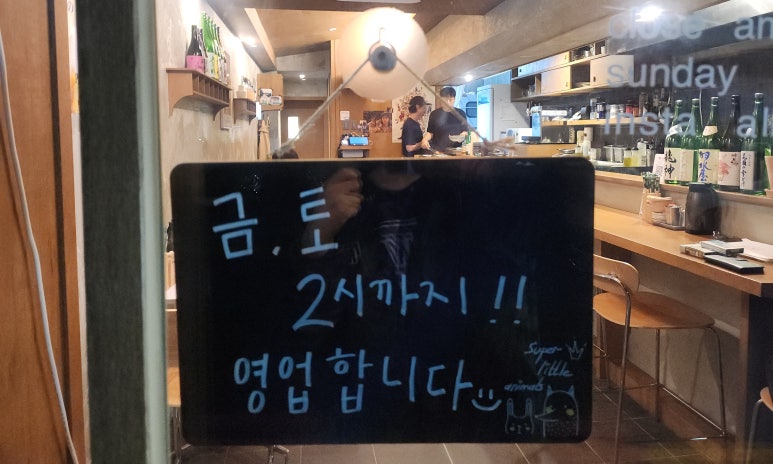 close an
sunday
insta al
금.토
2시까지!!
영업합니다
Super
little
animals
龍神